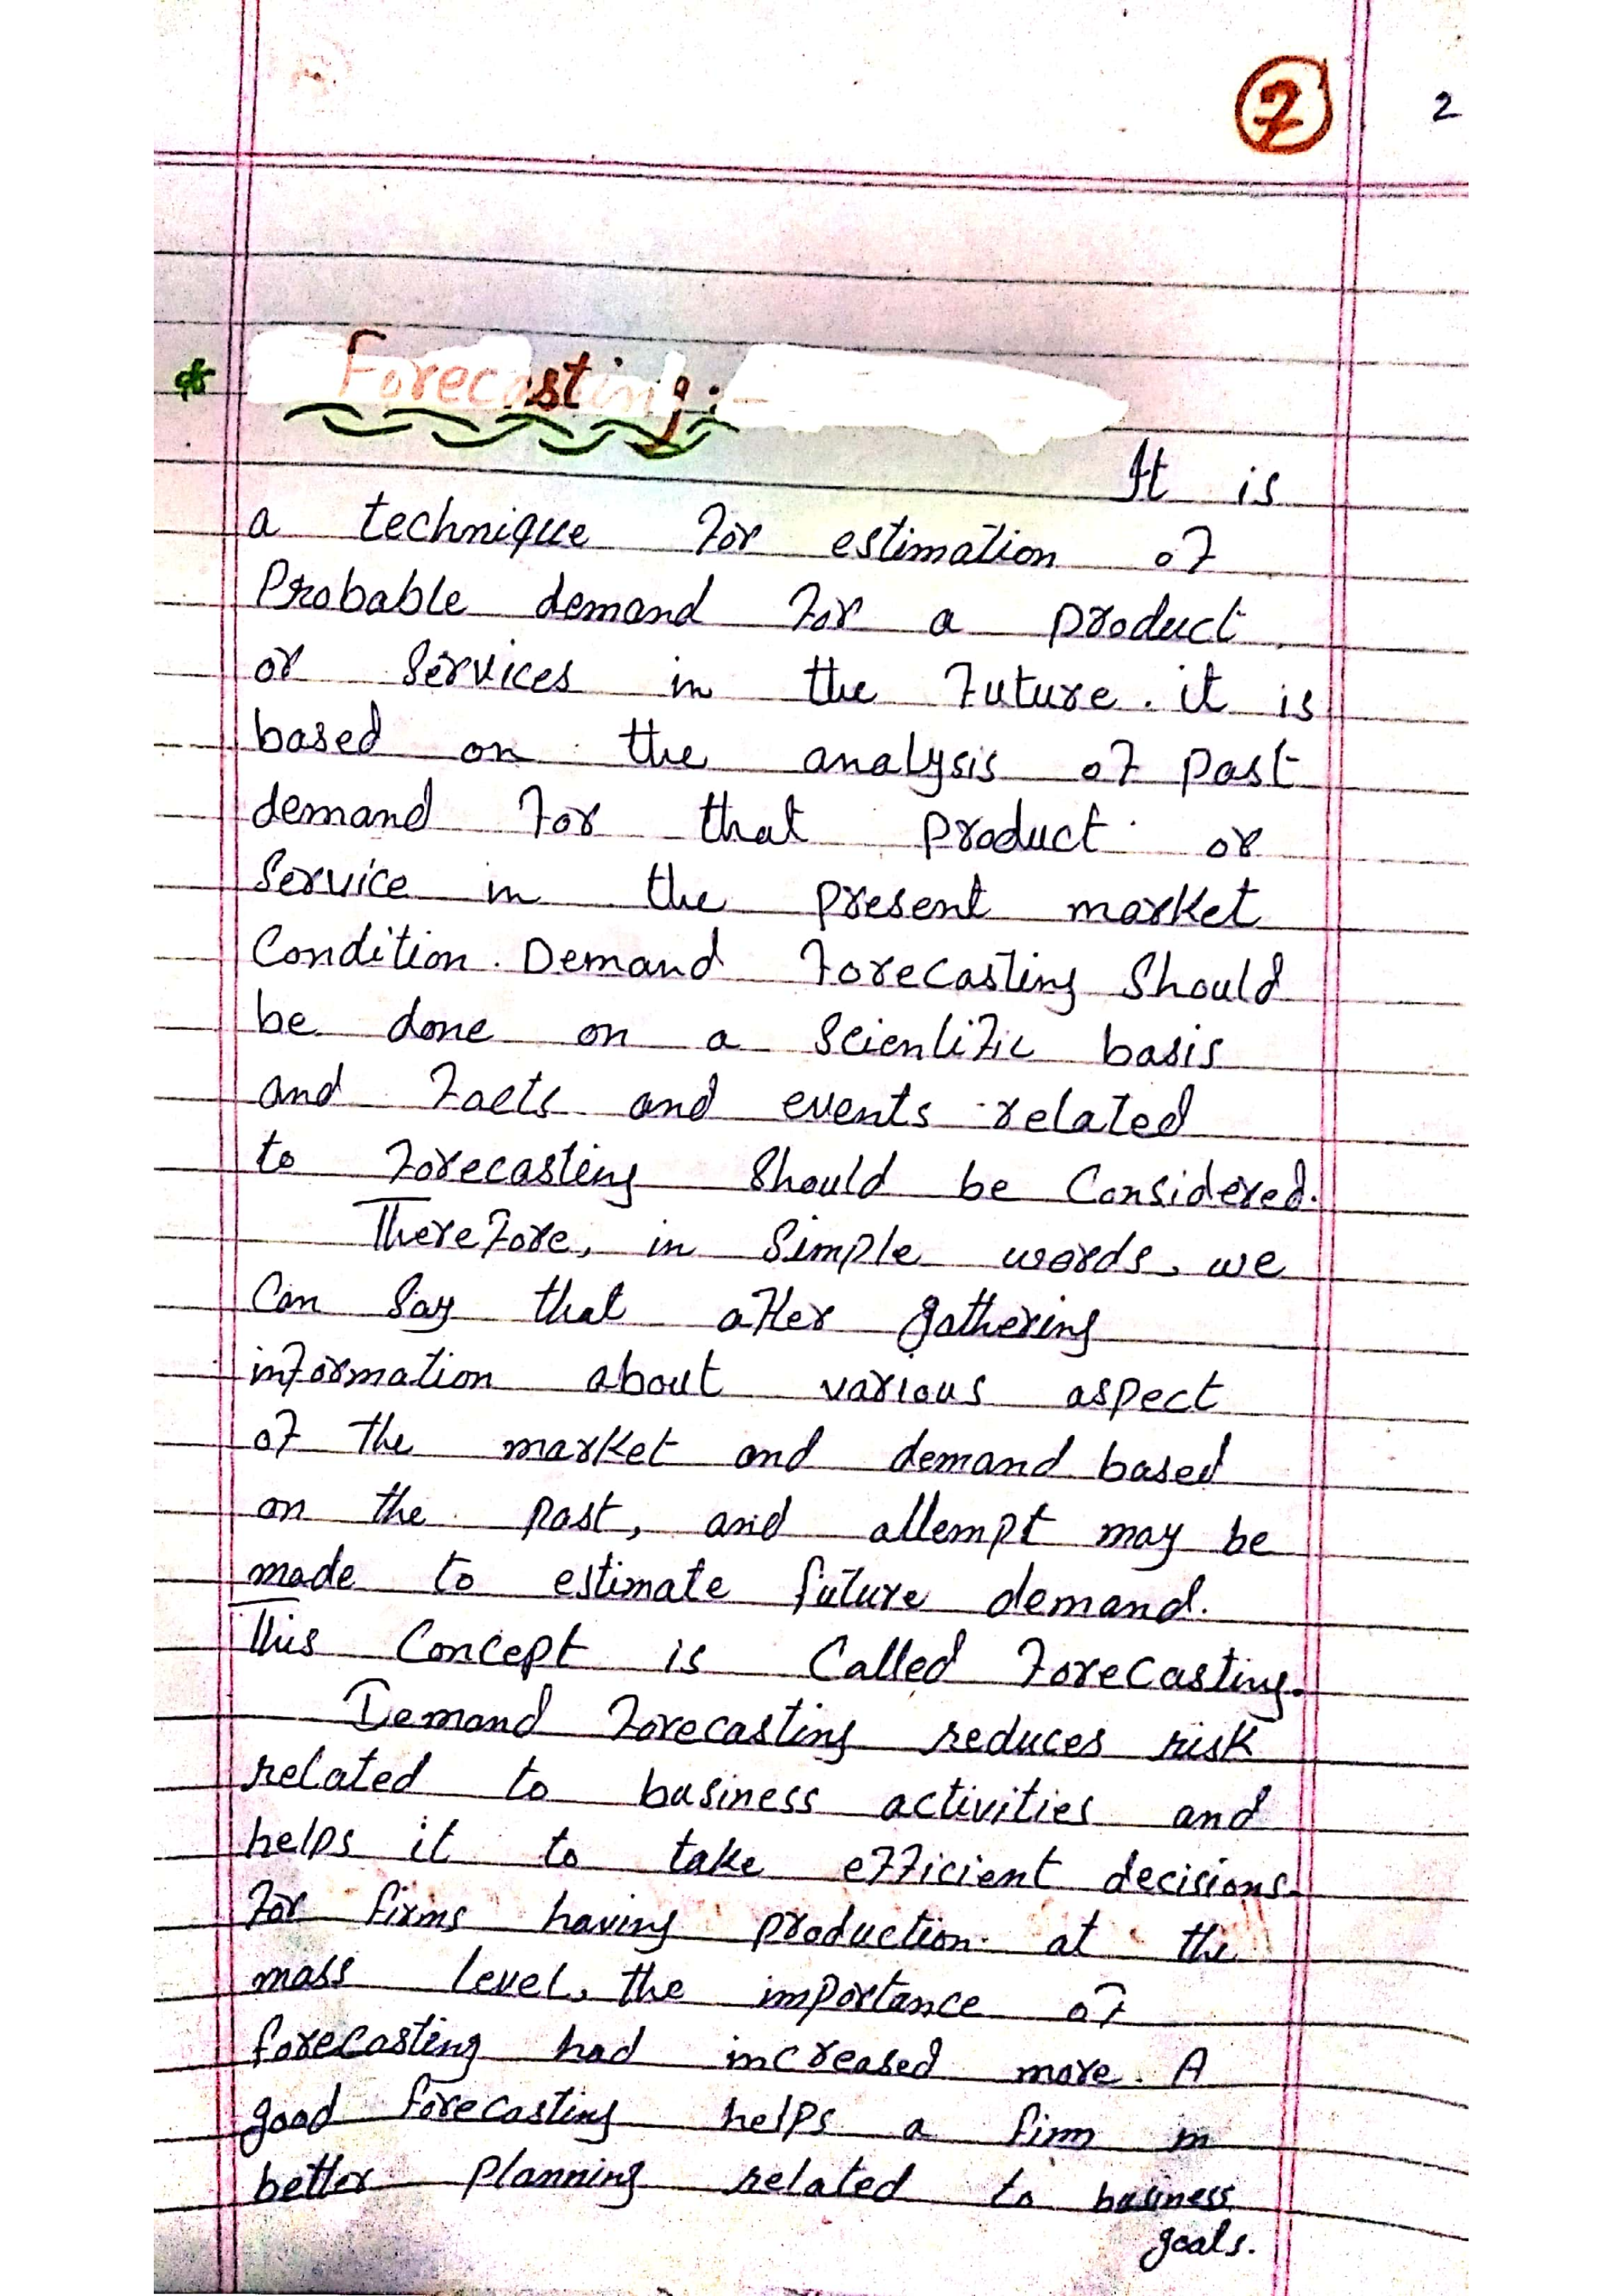 2
2
* Forecasting:-
It is
a technique for estimation of
Probable demand for a product
or Services in the future. it is
based on the analysis of past
demand for that product or
Service in the present market
Condition. Demand forecasting Should
be done on a Scientific basis
and facts and events related
to forecasting Should be Considered.
Therefore, in Simple words, we
Can Say that after gathering
information about various aspect
of the market and demand based
on the past, and attempt may be
made to estimate future demand.
This Concept is Called forecasting.
Demand forecasting reduces risk
related to business activities and
helps it to take efficient decisions.
For firms having production at the
mass level, the importance of
forecasting had increased more. A
good forecasting helps a firm in
better planning related to business
goals.